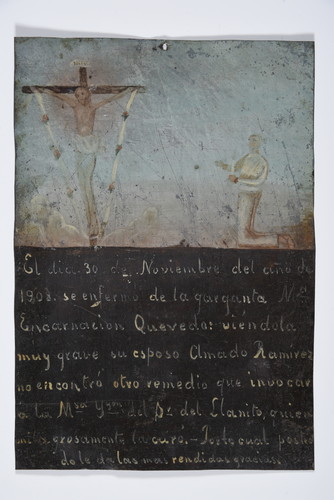 El dia 30 de Noviembre del año de
1908. se enfermó de la garganta Ma.
Encarnacion Quevedo: viéndola
muy grave su esposo Amado Ramirez
no encontró otro remedio que invocar
á la Msa. Ygn. del Sr. del Llanito, quien
milagrosamente la curó.-Por lo cual
do le da las mas rendidas gracias.